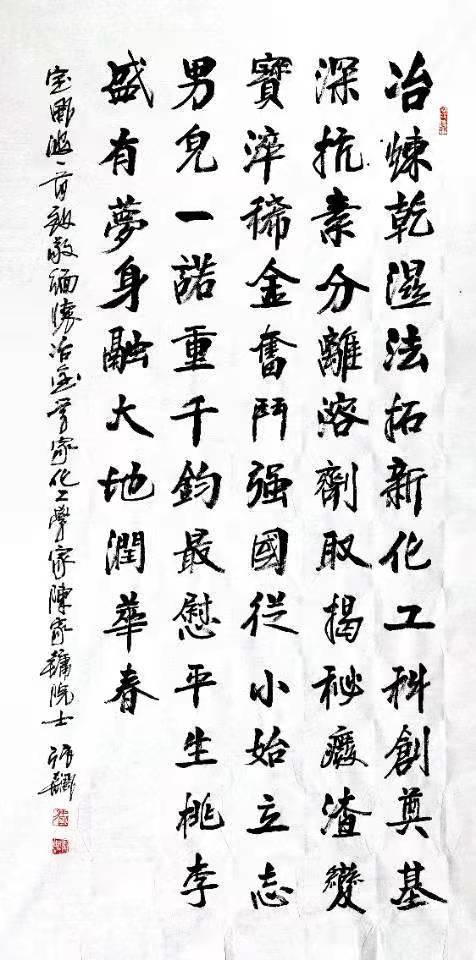 冶煉乾濕法拓新化工科創奠基
深抗素分離溶劑取揭秘廢渣變
寶淬稀金奮鬥强國從小始立志
男兒一諾重千鈞最慰平生桃李
盛有夢身融大地潤華春
定風波一首致敬緬懷冶金學家化工學家陳家鏞院士